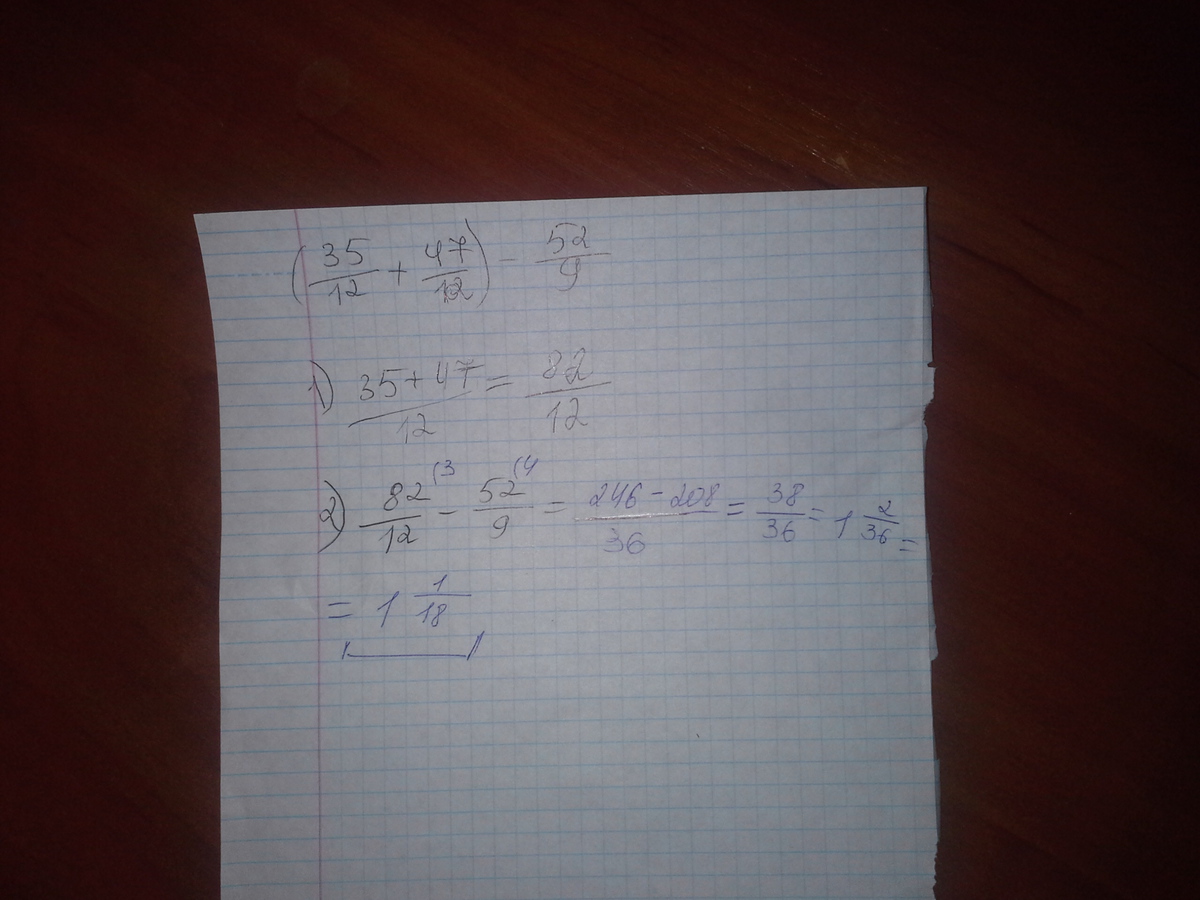 (35/12 + 47/12) - 52/9
1) (35+47)/12 = 82/12
2) 82/12 (3 - 52/9 (4 = (246-208)/36 = 38/36 = 1 2/36 =
= 1 1/18